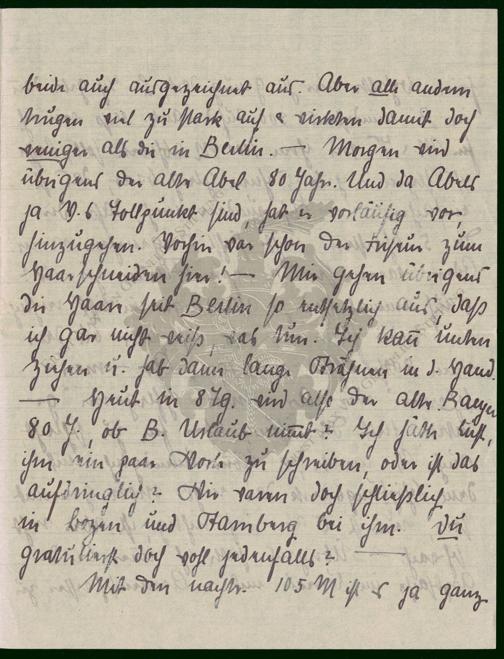 beide auch ausgezeichnet aus. Aber alle andern
trugen viel zu stark auf & wirkten damit doch
weniger als die in Berlin. — Morgen wird
übrigens der alte Abel 80 Jahr. Und da Abels
ja V.s Tollpunkt sind, hat er vorläufig vor,
hinzugehen. Vorhin war schon der Friseur zum
Haarschneiden hier! — Mir gehen übrigens
die Haare seit Berlin so entsetzlich aus, daß
ich gar nicht weiß, was tun. Ich kann unten
ziehen u. hab dann lange Strähnen in d. Hand.
— Heut in 8 Tg. wird also der alte Baeyer
80 J., ob B. Urlaub nimmt? Ich hätte Lust,
ihm ein paar Worte zu schreiben, oder ist das
aufdringlich? Wir waren doch schließlich
in Bozen und Starnberg bei ihm. Du
gratulierst doch wohl jedenfalls? —
Mit den nachtr. 105 M ist es ja ganz